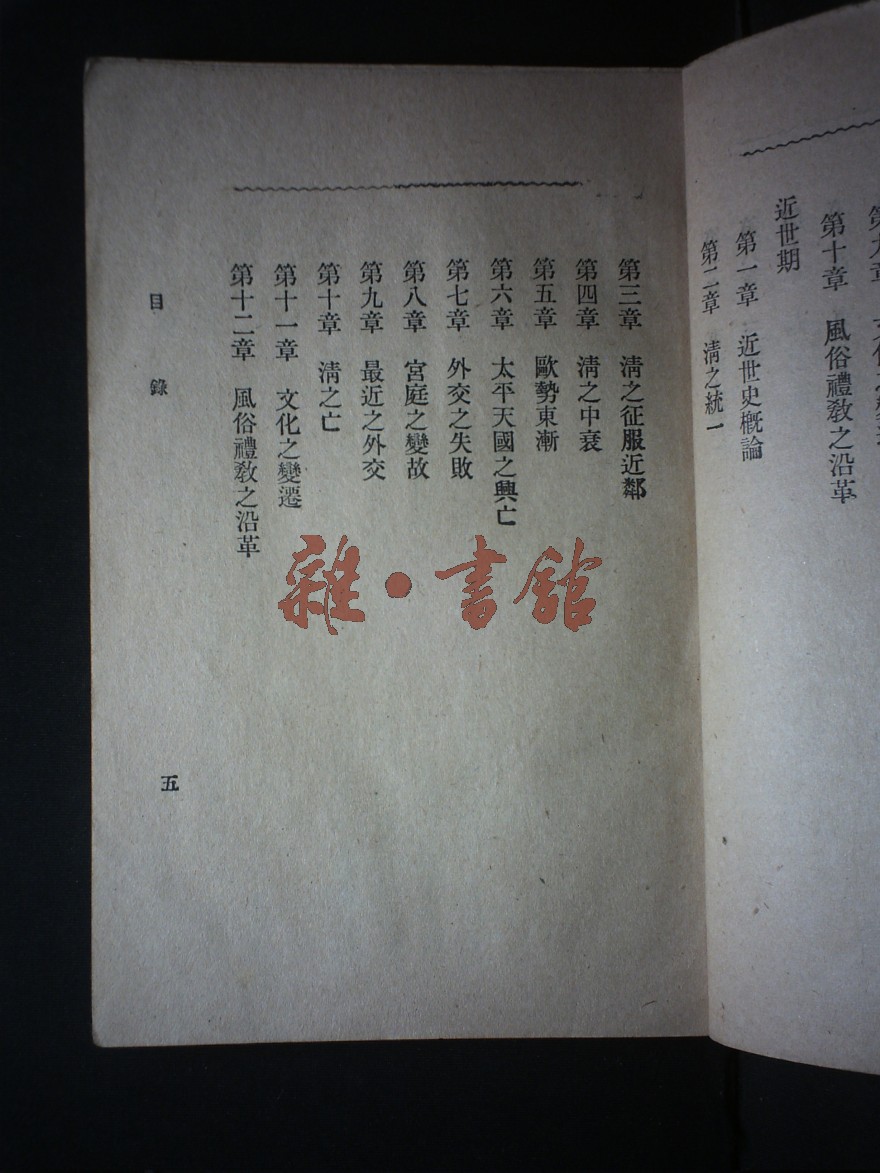 第十章　風俗禮教之沿革
近世期
第一章　近世史概論
第二章　清之統一
第三章　清之征服近鄰
第四章　清之中衰
第五章　歐勢東漸
第六章　太平天國之興亡
第七章　外交之失敗
第八章　宮庭之變故
第九章　最近之外交
第十章　清之亡
第十一章　文化之變遷
第十二章　風俗禮教之沿革
目錄
五
雜·書館